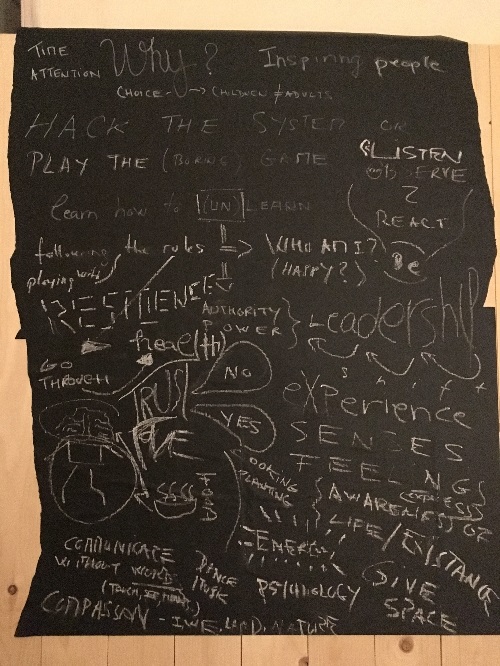 TIME
ATTENTION
Why?
Inspiring people
CHOICE → CHILDREN ≠ ADULTS
HACK THE SYSTEM OR
PLAY THE (BORING) GAME
LISTEN
OBSERVE
2
REACT
Be
learn how to (UN) LEARN
following the rules ⇒ WHO AM I?
playing with
(HAPPY?)
AUTHORITY
POWER } Leadership
heal(th)
GO
THROUGH
s h i f t
TRUST
NO
YES
eXPerience
SENSES
FEELINGS
COOKING
PLANTING
FOOD
AWARENESS
EXPRESS
FOR
LIFE / EXISTANCE
ENERGY
COMUNICATE
WITHOUT WORDS
DANCE
MUSIC
PSYCHOLOGY
GIVE
SPACE
COMPASSION - I.WE.LAND.NATURE